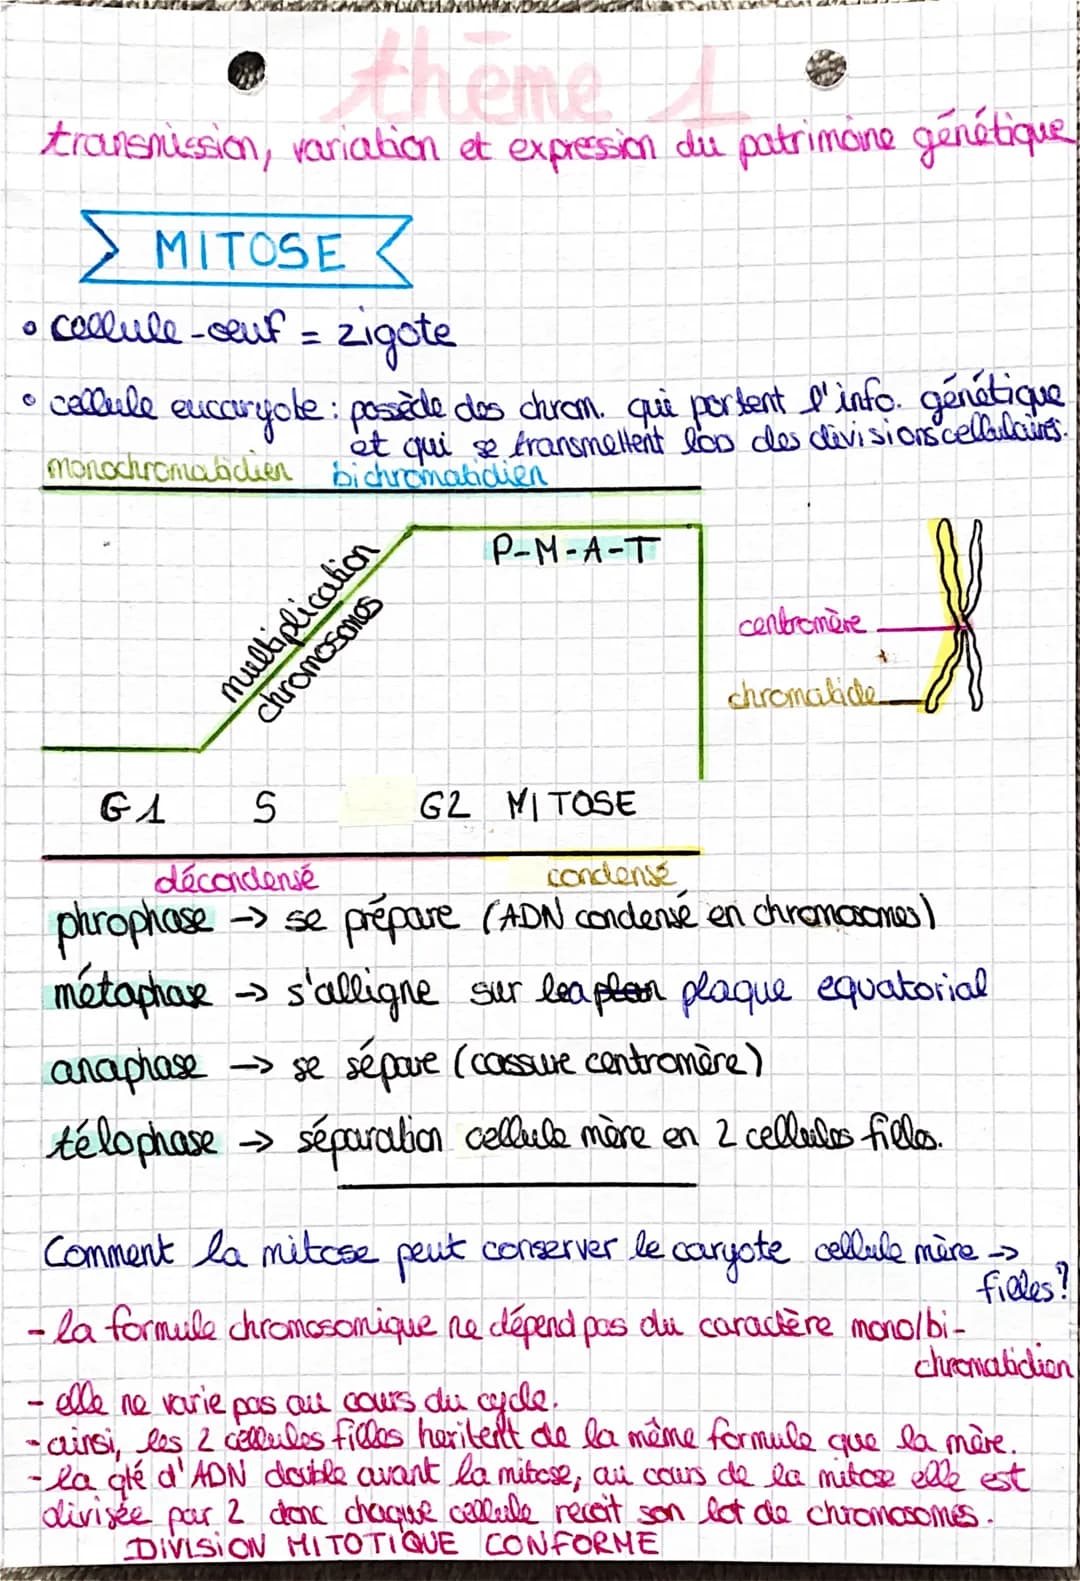 thème 1
transmission, variation et expression du patrimoine génétique
MITOSE
• cellule-oeuf = zigote
• cellule eucaryote : possède des chrom. qui portent l'info. génétique
et qui se transmettent los des divisions cellulaires.
monochromatidien bichromatidien
P-M-A-T
multiplication
chromosomes
centromère
chromatide
G1 S G2 MITOSE
décondensé condensé
phrophase -> se prépare (ADN condensé en chromosomes)
métaphase -> s'alligne sur la plaque equatorial
anaphase -> se sépare (cassure centromère)
télophase -> séparation cellule mère en 2 cellules filles.
Comment la mitose peut conserver le caryote cellule mère ->
filles?
- la formule chromosomique ne dépend pas du caractère mono/bi-
chromatidien
- elle ne varie pas au cours du cycle.
- ainsi, les 2 cellules filles heritent de la même formule que la mère.
- la qté d'ADN double avant la mitose, au cours de la mitose elle est
divisée par 2 donc chaque cellule recoit son lot de chromosomes.
DIVISION MITOTIQUE CONFORME